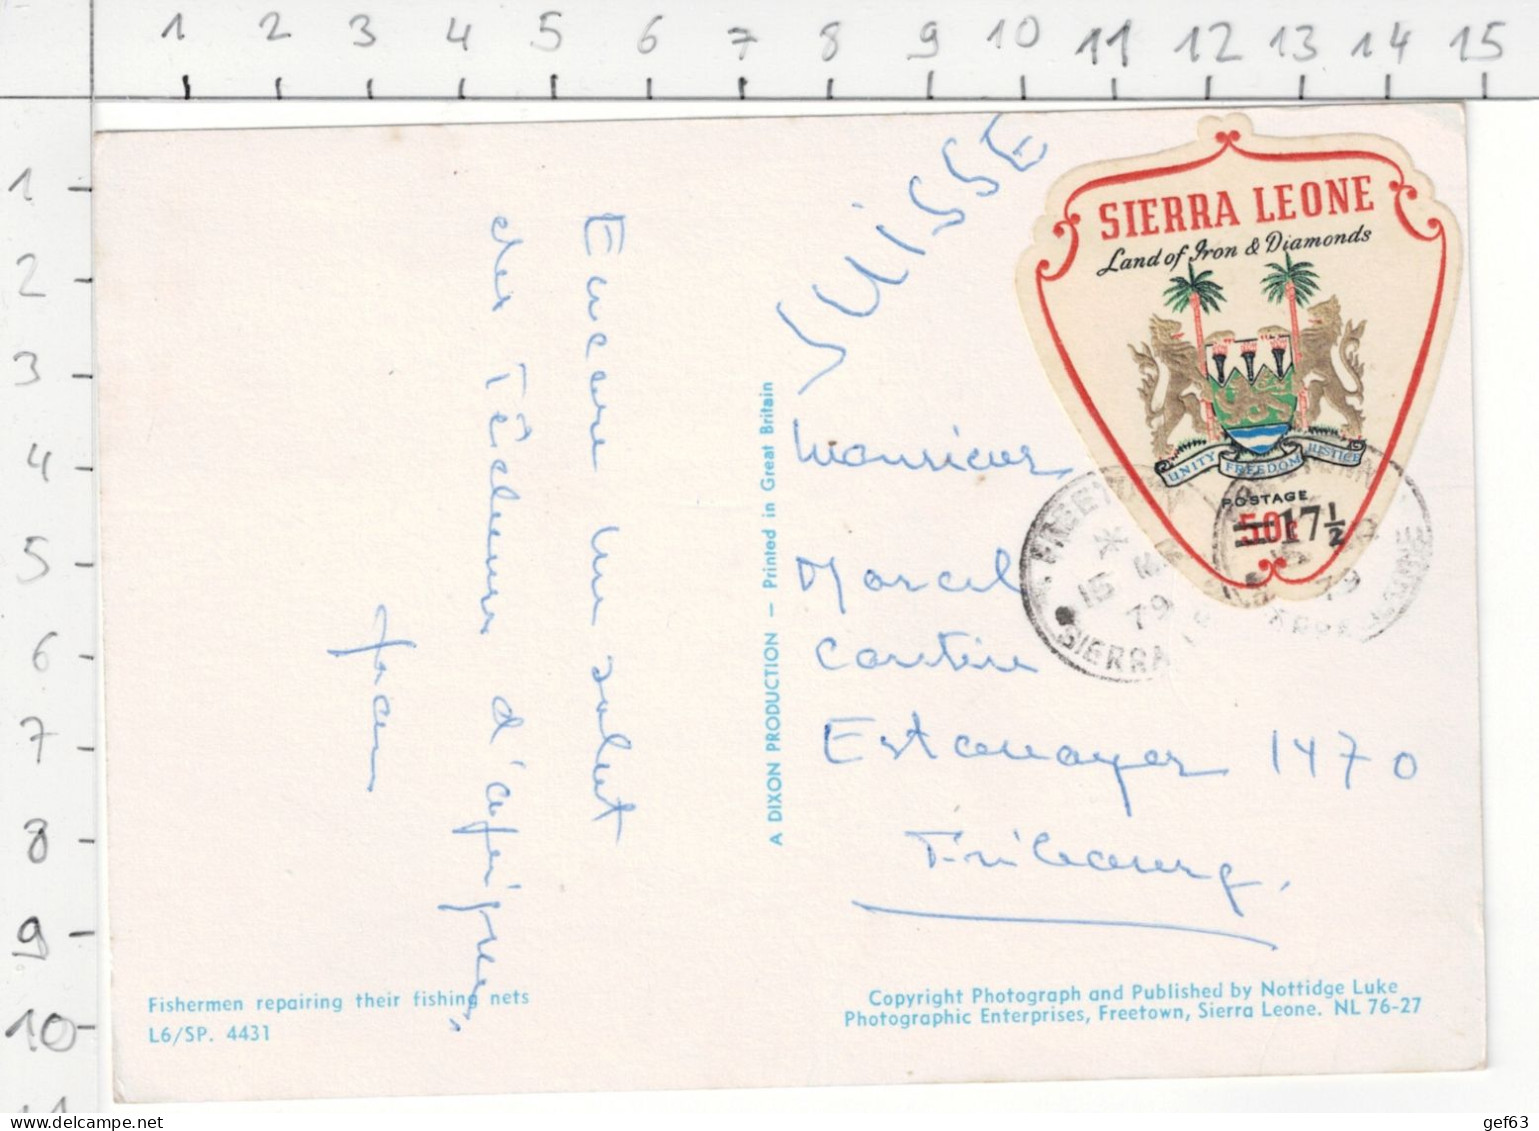 1 2 3 4 5 6 7 8 9 10 11 12 13 14 15
1
2
3
4
5
6
7
8
9
10
11
SUISSE
SIERRA LEONE
Land of Iron & Diamonds
UNITY FREEDOM JUSTICE
POSTAGE
50c 17½
FREETOWN
15
79
SIERRA
79
Encore un salut
des Pêcheurs d'afrique,
Jean
A DIXON PRODUCTION — Printed in Great Britain
Monsieur
Marcel
Estavayer 1470
Fribourg.
Fishermen repairing their fishing nets
L6/SP. 4431
Copyright Photograph and Published by Nottidge Luke
Photographic Enterprises, Freetown, Sierra Leone. NL 76-27
gef63